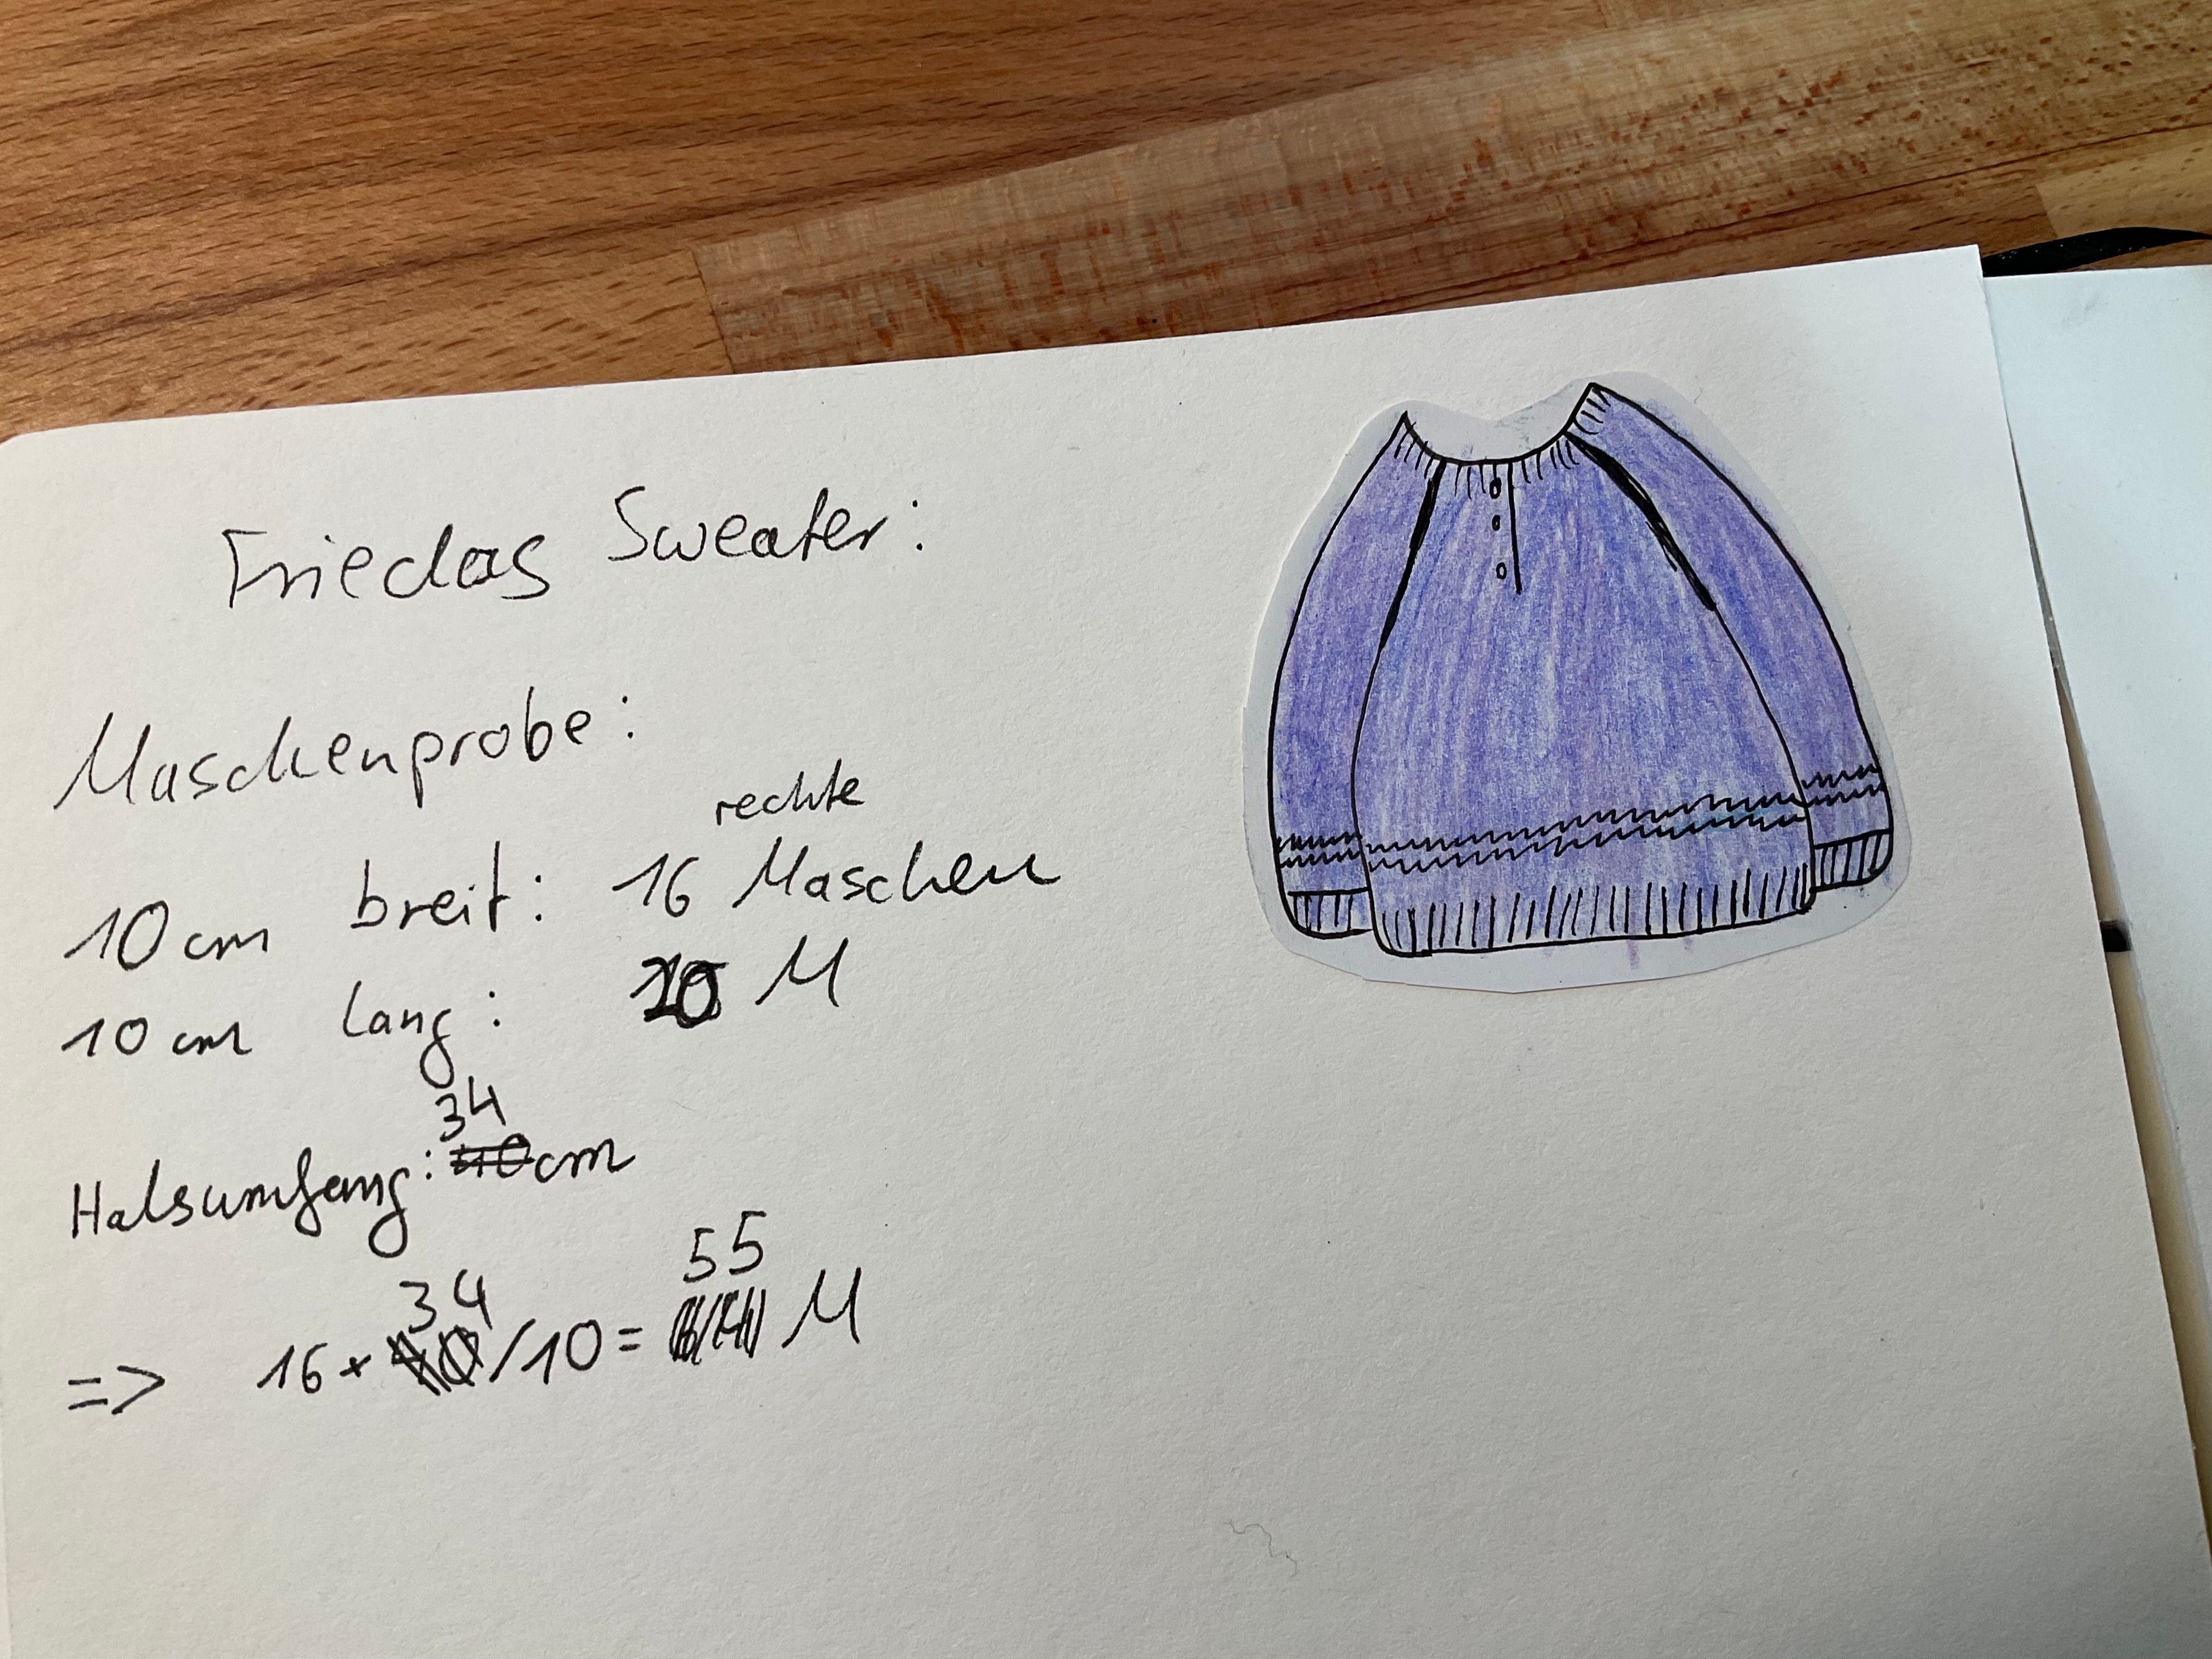 Friedas Sweater:
Maschenprobe:
rechte
10 cm breit: 16 Maschen
10 cm lang: 20 M
34
Halsumfang: 40cm
34 55
=> 16 * 40/10 = M